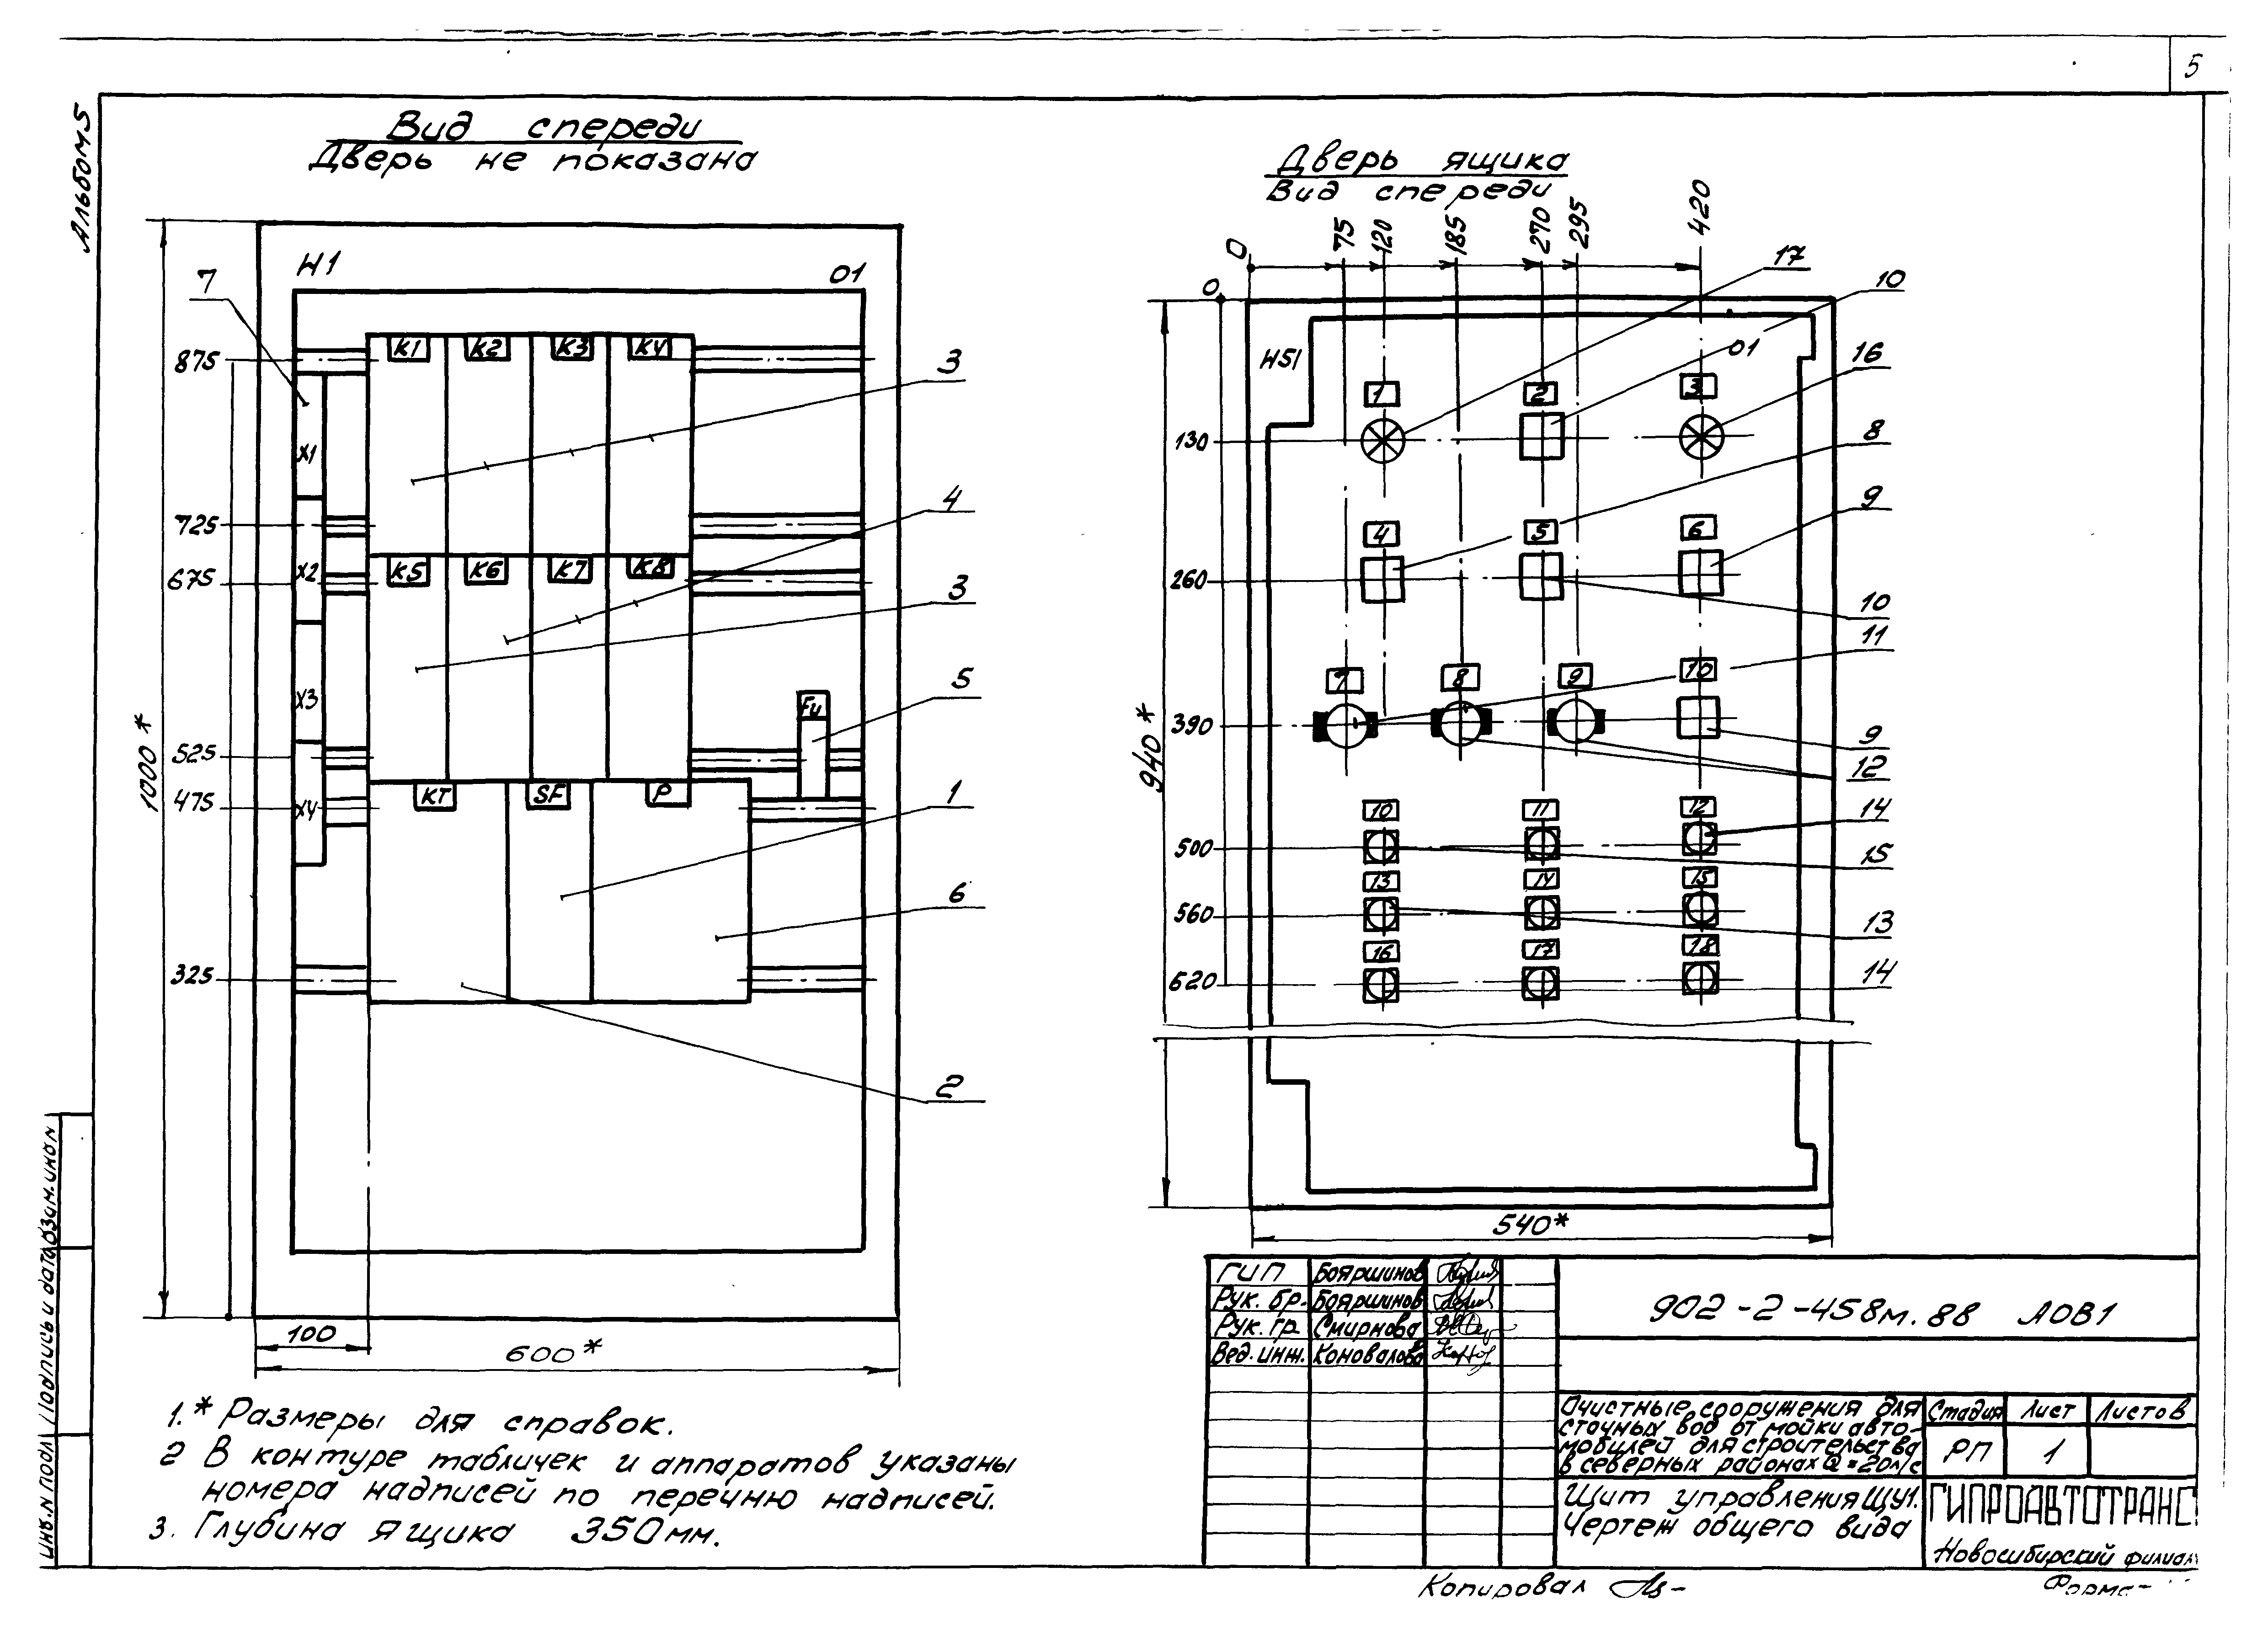 5
Альбом 5
Вид спереди
Дверь не показана
И1
01
7
К1 К2 К3 К4
К5 К6 К7 К8
КТ SF Р
Fu
Х1
Х2
Х3
Х4
875
725
675
525
475
325
1000*
100
600*
3
4
3
5
1
6
2
Дверь ящика
Вид спереди
0 75 120 185 270 295 420
0
130
260
390
500
560
620
940*
540*
И51
01
1 2 3
4 5 6
7 8 9 10
10 11 12
13 14 15
16 17 18
17
10
16
8
9
10
11
9
12
14
15
13
14
1.* Размеры для справок.
2 В контуре табличек и аппаратов указаны
номера надписей по перечню надписей.
3. Глубина ящика 350мм.
ГИП Бояршинов
Рук. бр. Бояршинов
Рук. гр. Смирнова
Вед. инж. Коновалова
902-2-458м.88 АОВ1
Очистные сооружения для
сточных вод от мойки авто-
мобилей для строительства
в северных районах Q=20л/с
Стадия Лист Листов
РП 1
Щит управления ЩУ1.
Чертеж общего вида
ГИПРОАВТОТРАНС
Новосибирский филиал
Копировал
Инв.N подл Подпись и дата Взам.инв N